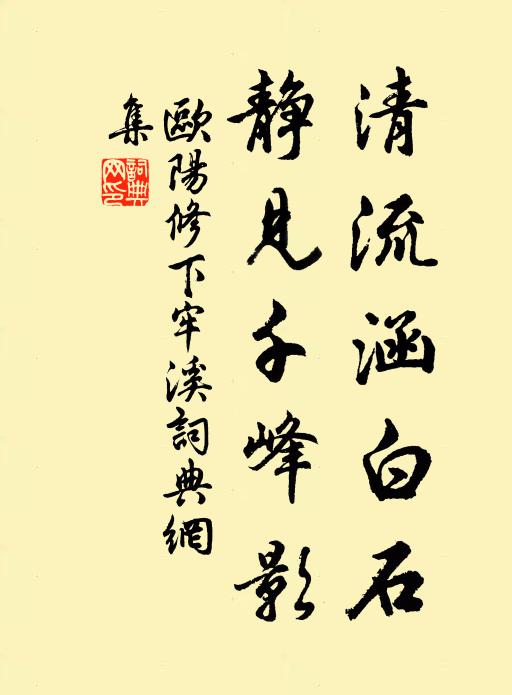 清流涵白石
静見千峰影
歐陽修下牢溪詞典網
集
詞典
网印